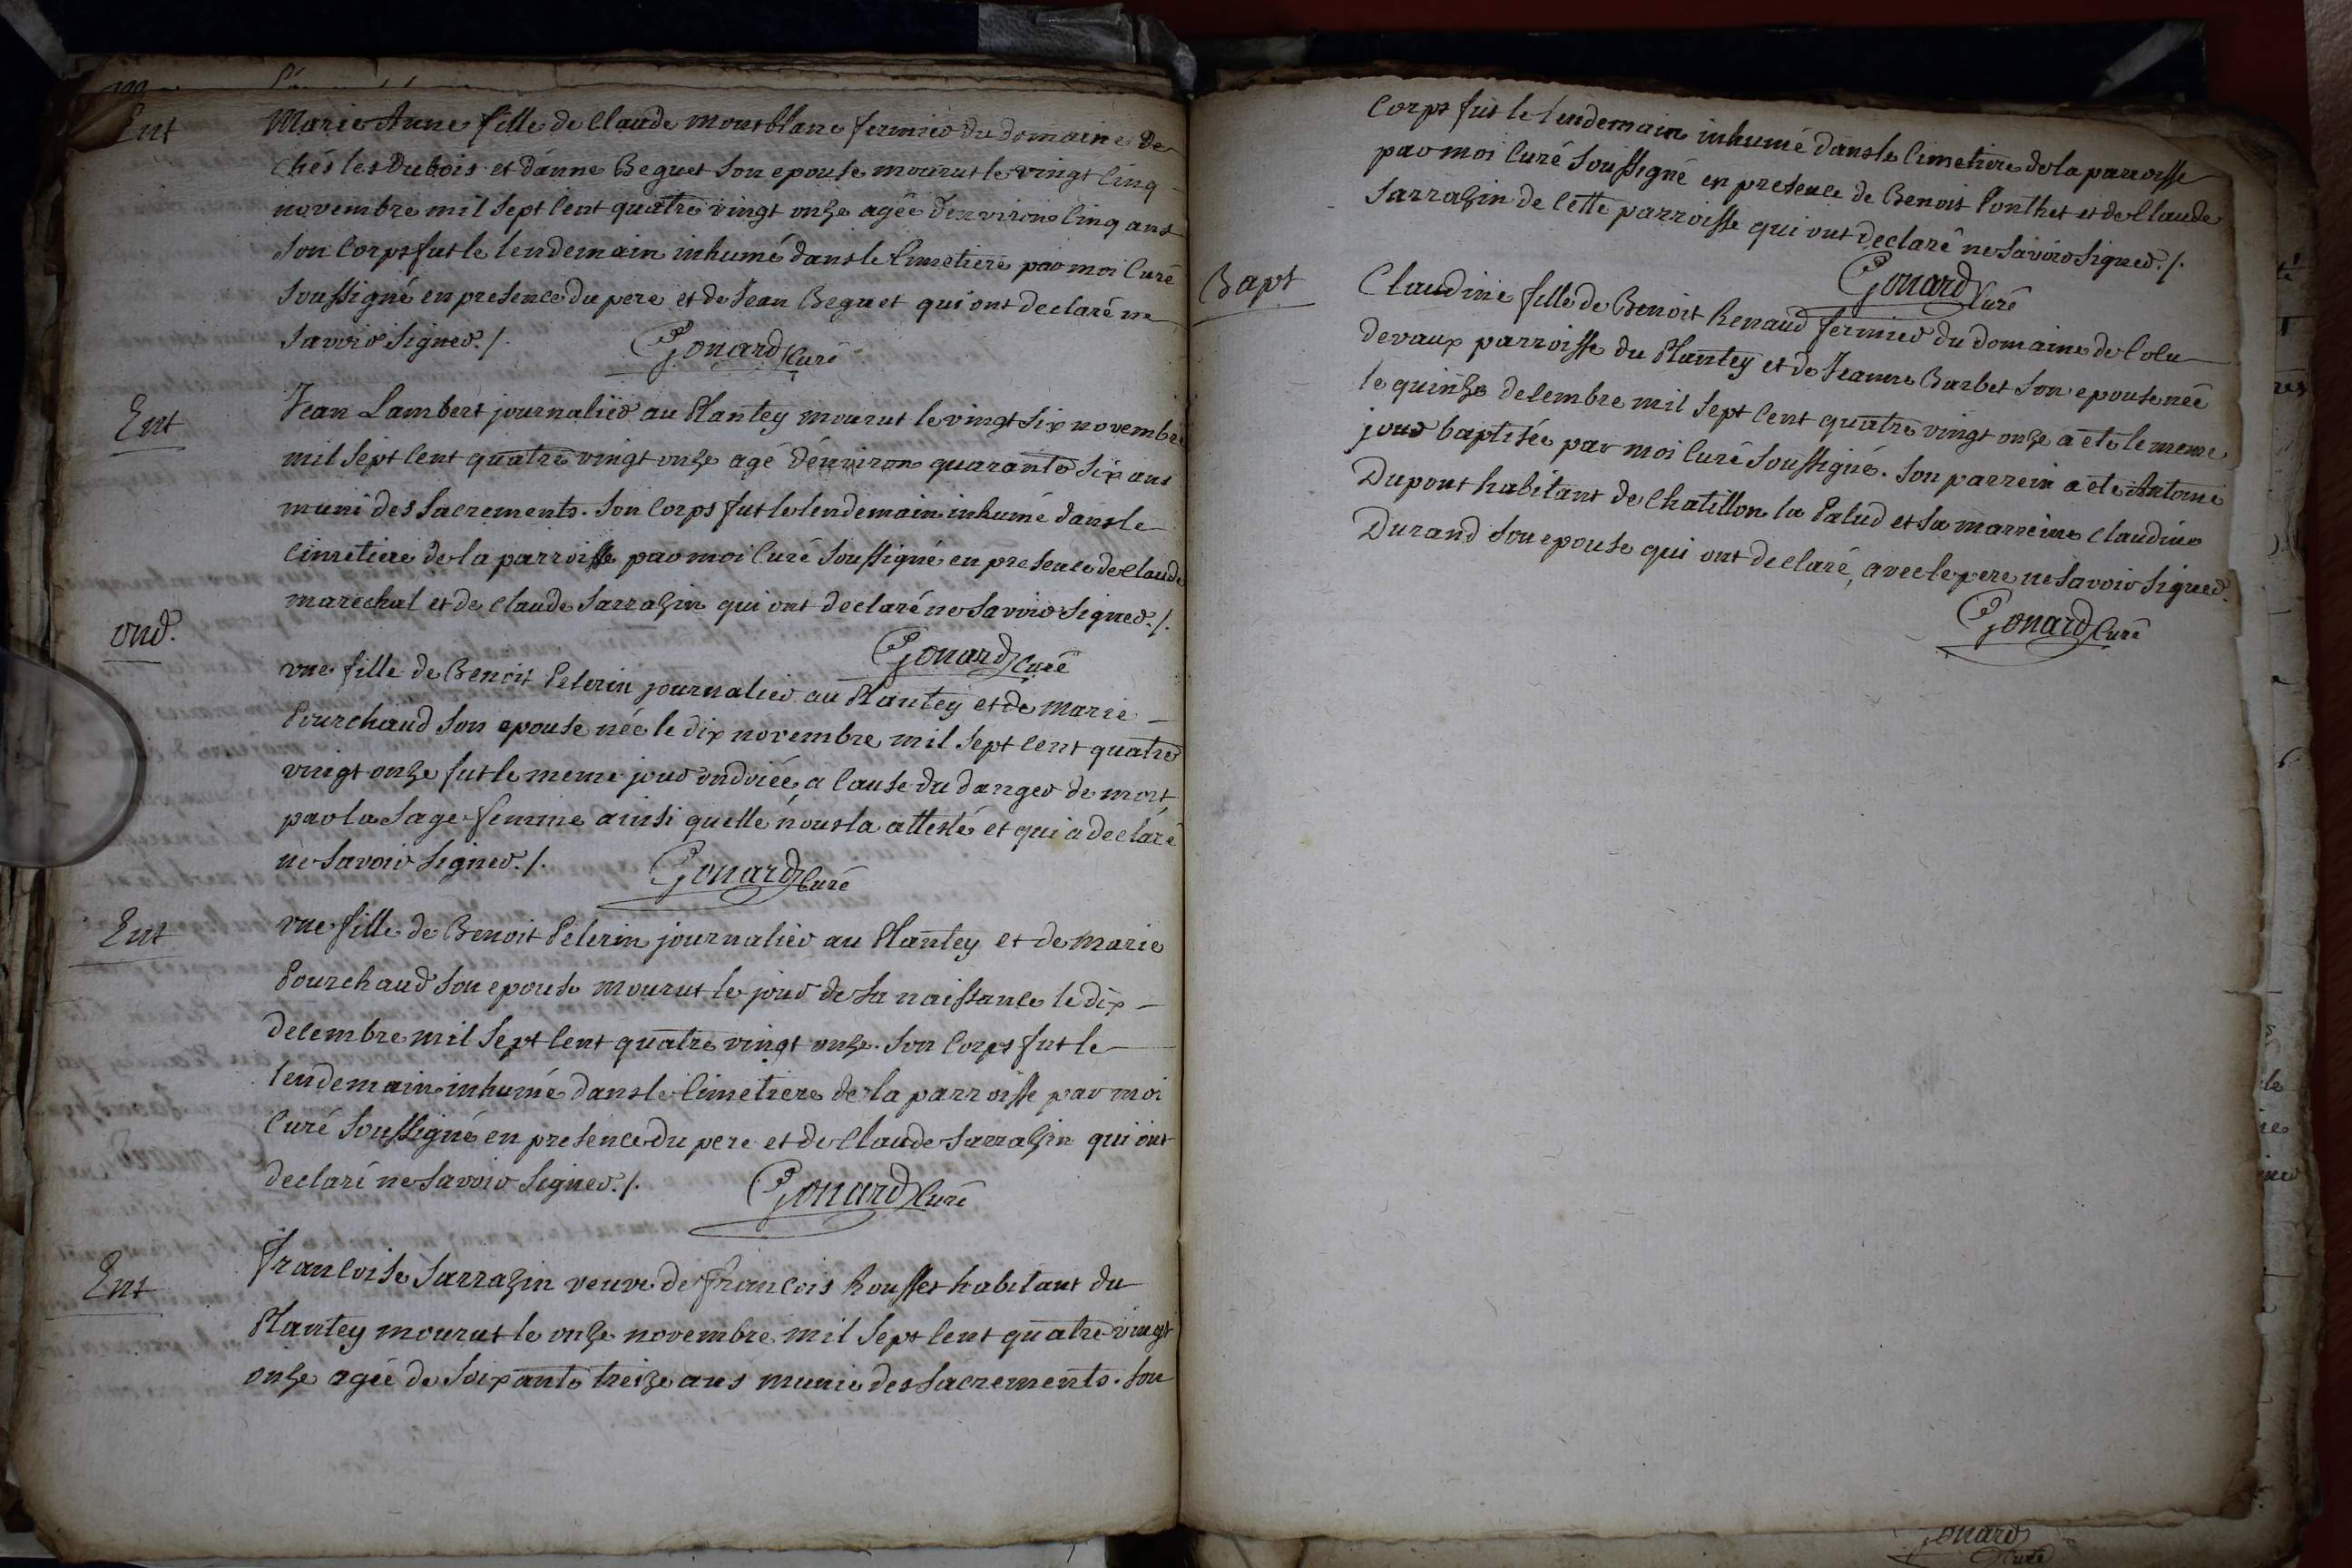 Ent
Marie Anne fille de Claude montblanc fermier du domaine de
chés les Dubois et d'anne Beguet son epouse mourut le vingt cinq
novembre mil sept cent quatre vingt onze agée d'environ cinq ans
son corps fut le lendemain inhumé dans le cimetiere par moi Curé
soussigné en presence du pere et de Jean Beguet qui ont declaré ne
savoir signer ./.
Gonard Curé
Ent
Jean Lambert journalier au Plantey mourut le vingt six novembre
mil sept cent quatre vingt onze agé d'environ quarante six ans
muni des sacrements. son corps fut le lendemain inhumé dans le
cimetiere de la parroisse par moi Curé soussigné en presence de Claude
marechal et de Claude Sarrazin qui ont declaré ne savoir signer ./.
Gonard Curé
ond.
une fille de Benoit Pelerin journalier au Plantey et de marie
Pourchaud son epouse née le dix novembre mil sept cent quatre
vingt onze fut le meme jour ondoiée, a cause du danger de mort,
par la sage-femme ainsi quelle nous la attesté et qui a declaré
ne savoir signer ./.
Gonard Curé
Ent
une fille de Benoit Pelerin journalier au Plantey et de marie
Pourchaud son epouse mourut le jour de sa naissance le dix
decembre mil sept cent quatre vingt onze. son corps fut le
lendemain inhumé dans le cimetiere de la parroisse par moi
Curé soussigné en presence du pere et de Claude Sarrazin qui ont
declaré ne savoir signer ./.
Gonard Curé
Ent
francoise Sarrazin veuve de francois Rousset habitant du
Plantey mourut le onze novembre mil sept cent quatre vingt
onze agée de soixante treize ans munie des sacrements. son
corps fut le lendemain inhumé dans le cimetiere de la parroisse
par moi Curé soussigné en presence de Benoit Ponthet et de Claude
Sarrazin de cette parroisse qui ont declaré ne savoir signer ./.
Gonard Curé
Bapt
Claudine fille de Benoit Renaud fermier du domaine de
devaux parroisse du Plantey et de Jeanne Barbet son epouse née
le quinze decembre mil sept cent quatre vingt onze a eté le meme
jour baptisée par moi Curé soussigné. son parrein a eté Antoine
Dupont habitant de Chatillon la Palud et sa marreine Claudine
Durand son epouse qui ont declaré, avec le pere ne savoir signer.
Gonard Curé
Gonard
Curé